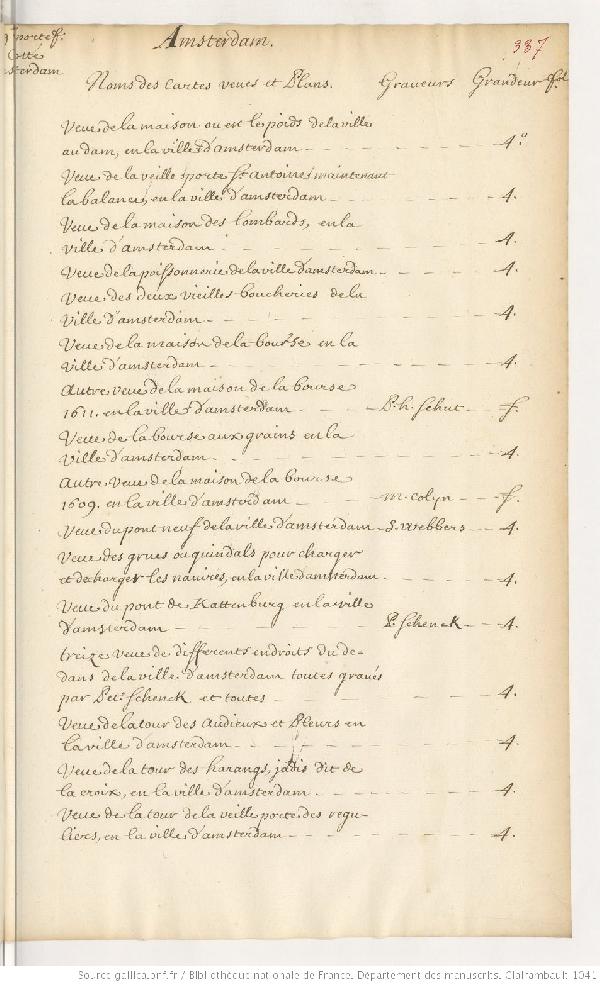 portef:
cotté
Amsterdam
Amsterdam.
337
Noms des Cartes veues et Plans. Graveurs Grandeur fol
Veue de la maison ou est le poids de la ville
au dam, en la ville d'amsterdam 4.º
Veue de la veille porte St. Antoine, maintenant
la balance, en la ville d'amsterdam 4.
Veue de la maison des lombards, en la
ville d'amsterdam 4.
Veue de la poissonnerie de la ville d'amsterdam 4.
Veue des deux vieilles boucheries de la
ville d'amsterdam 4.
Veue de la maison de la bourse en la
ville d'amsterdam 4.
Autre veue de la maison de la bourse
1611. en la ville d'amsterdam P. h. Schut f.
Veue de la bourse aux grains en la
ville d'amsterdam 4.
Autre Veue de la maison de la bourse
1609. en la ville d'amsterdam m. colijn f.
Veue du pont neuf de la ville d'amsterdam S. webbers 4.
Veue des grues ou guindals pour charger
et decharger les navires, en la ville d'amsterdam 4.
Veue du pont de Kattenburg en la ville
d'amsterdam P. Schenck 4.
treize veue de differents endroits du de-
dans de la ville d'amsterdam toutes gravés
par Pet. Schenck et toutes 4.
Veue de la tour des Audieux et Pleurs en
la ville d'amsterdam 4.
Veue de la tour des harangs, jadis dit de
la croix, en la ville d'amsterdam 4.
Veue de la tour de la veille porte des regu-
liers, en la ville d'amsterdam 4.
Source gallica.bnf.fr / Bibliothèque nationale de France. Département des manuscrits. Clairambault 1041